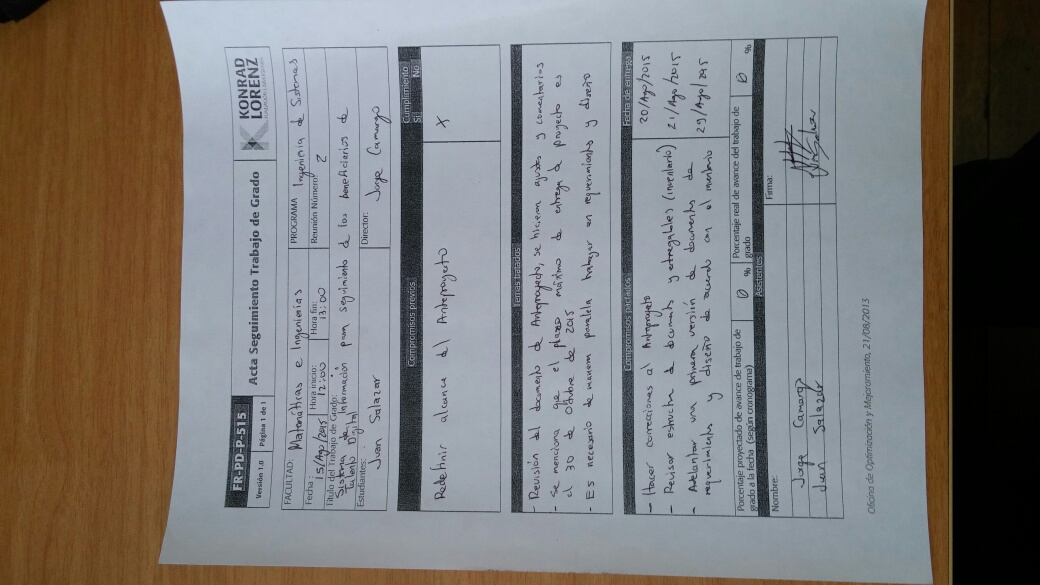 FR-PD-P-515
Versión 1.0 Página 1 de 1
Acta Seguimiento Trabajo de Grado
KONRAD
LORENZ
FUNDACIÓN UNIVERSITARIA
FACULTAD: Matemáticas e Ingenierías PROGRAMA Ingeniería de Sistemas
Fecha: 15/Ago/2015 Hora inicio: 12:00 Hora fin: 13:00 Reunión Número: 2
Título del Trabajo de Grado:
Sistema de Información para seguimiento de los beneficiarios de
Talento Digital
Estudiantes: Juan Salazar Director: Jorge Camargo
Compromisos previos Cumplimiento
Si No
Redefinir alcance del Anteproyecto X
Temas tratados
- Revisión del documento de Anteproyecto, se hicieron ajustes y comentarios
- Se menciona que el plazo máximo de entrega de proyecto es
el 30 de Octubre de 2015
- Es necesario de manera paralela trabajar en requerimientos y diseño
Compromisos pactados Fecha de entrega
- Hacer correcciones al Anteproyecto 20/Ago/2015
- Revisar estructura de documents y entregables (inventario) 21/Ago/2015
- Adelantar una primera versión de documentos de
requerimientos y diseño de acuerdo con el inventario 29/Ago/2015
Porcentaje proyectado de avance de trabajo de
grado a la fecha (según cronograma) 0 %
Porcentaje real de avance del trabajo de
grado 0 %
Asistentes
Nombre: Firma:
Jorge Camargo
Juan Salazar
Oficina de Optimización y Mejoramiento, 21/08/2013